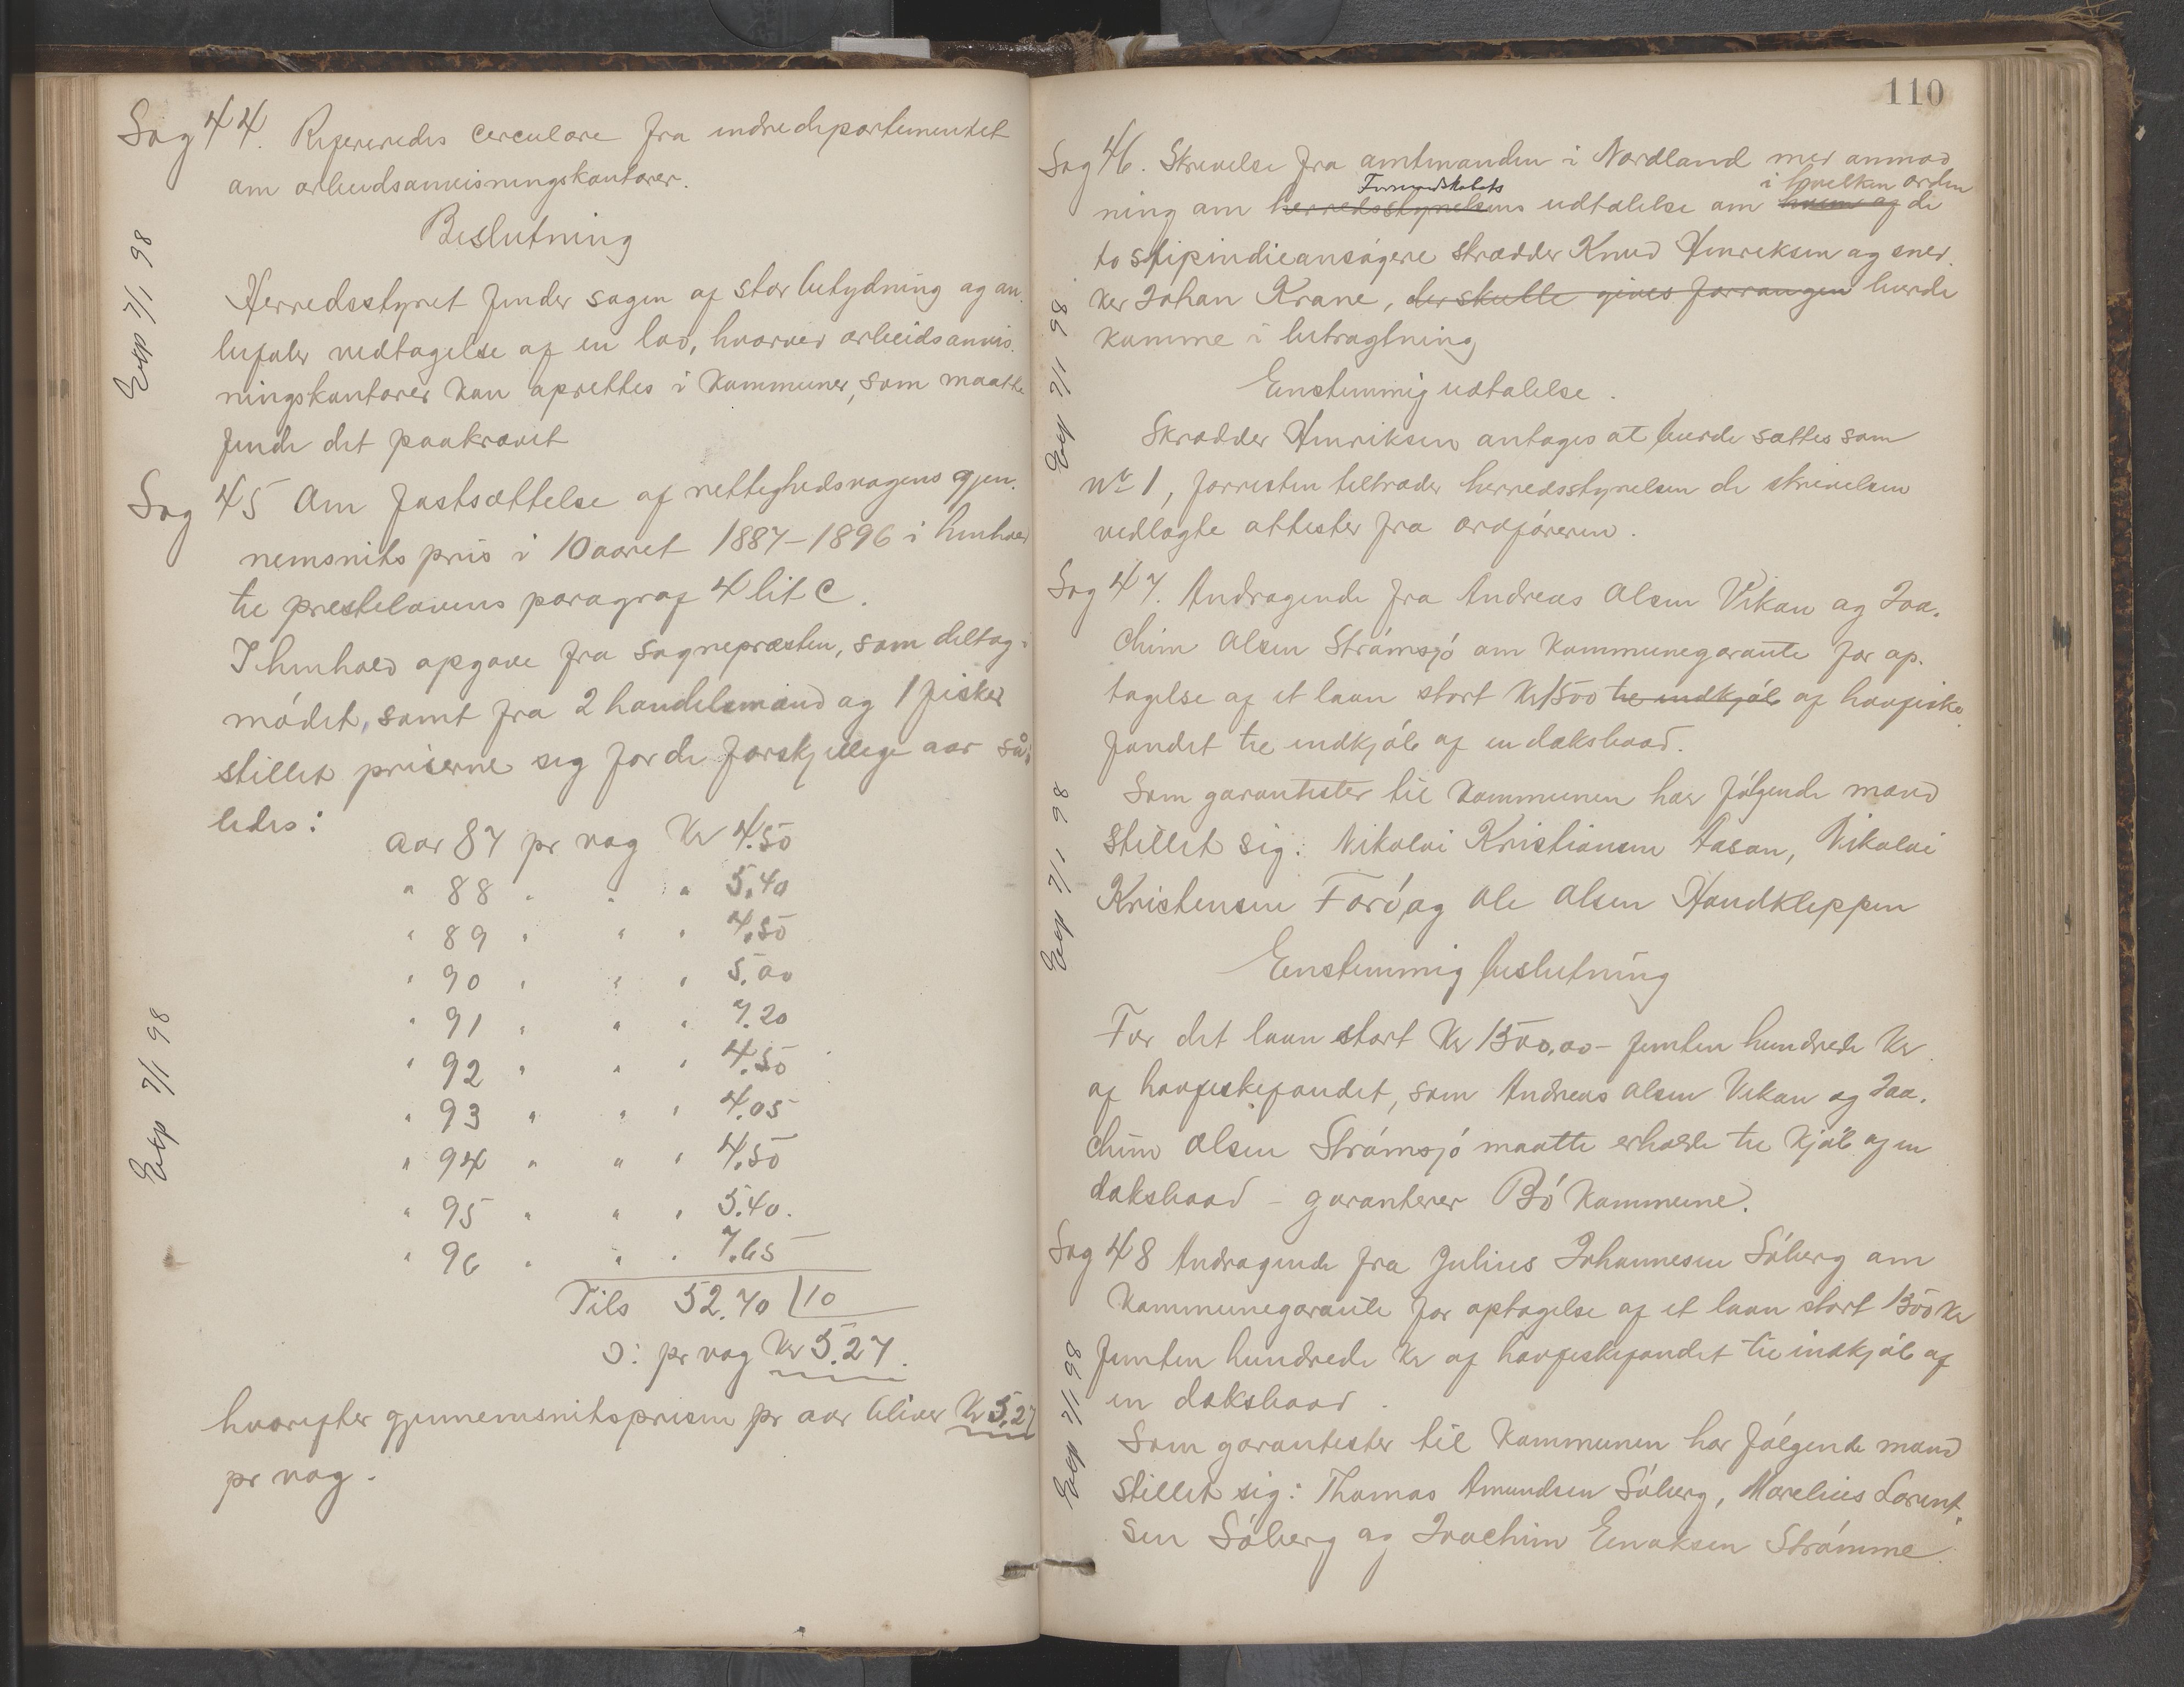 Sag 44. Refereredes cerculære fra indredepartementet
om arbeidsanvisningskontorer.
Beslutning
Exp 7/1 98
Herredsstyret finder sagen af stor betydning og an-
befaler vedtagelse af en lov, hvorved arbeidsanvis-
ningskontorer kan oprettes i Kommuner, som maatte
finde det paakrævet
Sag 45 Om fastsættelse af rettighedsvagens gjen-
nemsnits pris i 10 aaret 1887-1896 i henhold
til prestelovens paragraf 4 lit c.
I henhold opgave fra sognepræsten, som deltog i
mödet, samt fra 2 handelsmænd og 1 fisker
stillet priserne sig for de forskjellige aar så-
ledes:
Aar 87 pr vog Kr 4.50
" 88 " " " 5.40
" 89 " " " 4.50
" 90 " " " 5.00
" 91 " " " 7.20
" 92 " " " 4.50
" 93 " " " 4.05
" 94 " " " 4.50
" 95 " " " 5.40.
" 96 " " " 7.65
Tils 52.70 | 10
ɔ: pr vog Kr 5.27.
Exp 7/1 98
hvorefter gjennemsnitsprisen pr aar bliver Kr 5.27
pr vog.
110
Sag 46. Skrivelse fra amtmanden i Nordland med anmod
Formandskabets i hvilken orden
ning om herredsstyrelsens udtalelse om hvem af de
to stipindieansögere skrædder Knud Henriksen og sned-
ker Johan Krane, der skulle gives forrangen burde
komme i betragtning
Exp 7/1 98
Enstemmig udtalelse.
Skrædder Henriksen antages at burde sættes som
No 1, forresten tiltræder herredsstyrelsen de skrivelsen
vedlagte attester fra ordföreren.
Sag 47. Andragende fra Andreas Olsen Vikan og Joa-
chim Olsen Strömsjö om Kommunegarante for op-
tagelse af et laan stort Kr 1500 til indkjöb af havfiske
fondet til indkjöb af en dæksbaad.
Som garantister til Kommunen har fölgende mænd
stillet sig: Nikolai Kristiansen Aasan, Nikolai
Kristensen Forö, og Ole Olsen Handkleppen
Exp 7/1 98
Enstemmig beslutning
For det laan stort Kr 1500,00 - femten hundrede Kr
af havfiskefondet, som Andreas Olsen Vikan og Joa-
chim Olsen Strömsjö maatte erholde til kjöb af en
dæksbaad - garanterer Bö Kommune.
Sag 48 Andragende fra Julius Johannesen Söberg om
Kommunegarante for optagelse af et laan stort 1500 Kr
femten hundrede Kr af havfiskefondet til indkjöb af
en dæksbaad.
Exp 7/1 98
Som garantister til Kommunen har fölgende mænd
stillet sig: Thomas Amundsen Söberg, Marelius Lorent-
sen Söberg og Joachim Enoksen Strömme.